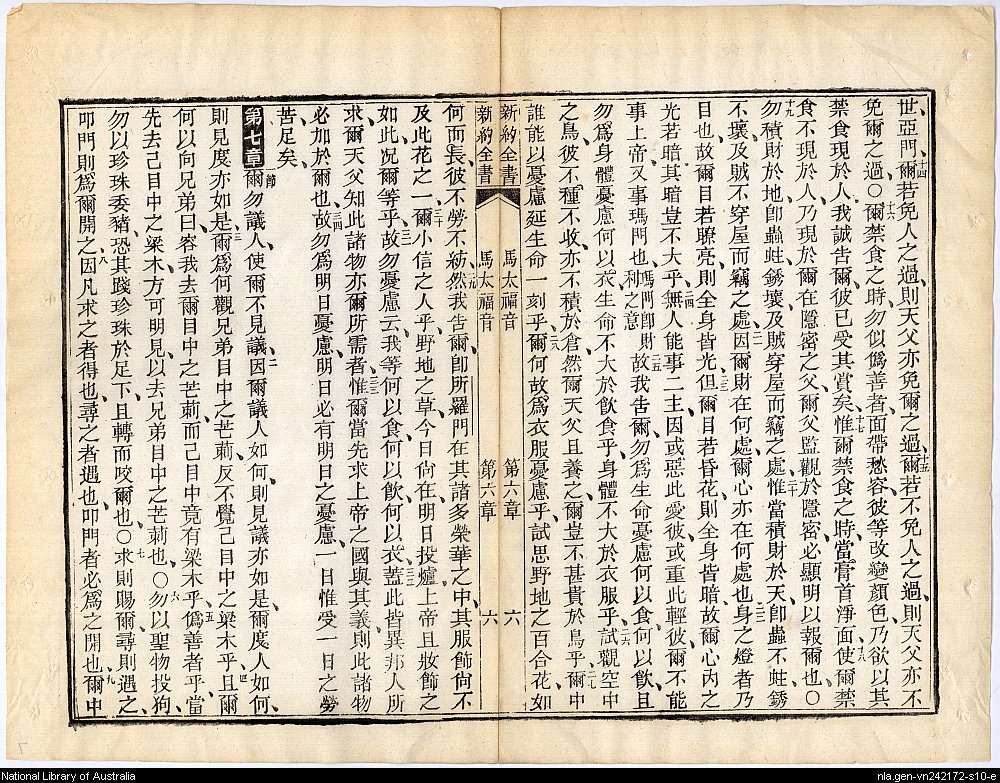 世亞門爾若免人之過則天父亦免爾之過爾若不免人之過則天父亦不
免爾之過○爾禁食之時勿似僞善者面帶愁容彼等改變顏色乃欲以其
禁食現於人我誠告爾彼已受其賞矣惟爾禁食之時當膏首淨面使爾禁
食不現於人乃現於爾在隱密之父爾父監觀於隱密必顯明以報爾也○
勿積財於地卽蟲蛀銹壞及賊穿屋而竊之處惟當積財於天卽蟲不蛀銹
不壞及賊不穿屋而竊之處因爾財在何處爾心亦在何處也身之燈者乃
目也故爾目若瞭亮則全身皆光但爾目若昏花則全身皆暗故爾心內之
光若暗其暗豈不大乎無人能事二主因或惡此愛彼或重此輕彼爾不能
事上帝又事瑪門也瑪門卽財利之意故我告爾勿爲生命憂慮何以食何以飲且
勿爲身體憂慮何以衣生命不大於飲食乎身體不大於衣服乎試觀空中
之鳥彼不種不收亦不積於倉然爾天父且養之爾豈不甚貴於鳥乎爾中
誰能以憂慮延生命一刻乎爾何故爲衣服憂慮乎試思野地之百合花如
新約全書 馬太福音 第六章 六
新約全書 馬太福音 第六章 六
何而長彼不勞不紡然我告爾卽所羅門在其諸多榮華之中其服飾尙不
及此花之一爾小信之人乎野地之草今日尙在明日投爐上帝且妝飾之
如此况爾等乎故勿憂慮云我等何以食何以飲何以衣蓋此皆異邦人所
求爾天父知此諸物亦爾所需者惟爾當先求上帝之國與其義則此諸物
必加於爾也故勿爲明日憂慮明日必有明日之憂慮一日惟受一日之勞
苦足矣
第七章 節爾勿議人使爾不見議因爾議人如何則見議亦如是爾度人如何
則見度亦如是爾爲何觀兄弟目中之芒莿反不覺己目中之梁木乎且爾
何以向兄弟曰容我去爾目中之芒莿而己目中竟有梁木乎僞善者乎當
先去己目中之梁木方可明見以去兄弟目中之芒莿也○勿以聖物投狗
勿以珍珠委豬恐其踐珍珠於足下且轉而咬爾也○求則賜爾尋則遇之
叩門則爲爾開之因凡求之者得也尋之者遇也叩門者必爲之開也爾中
National Library of Australia
nla.gen-vn242172-s10-e